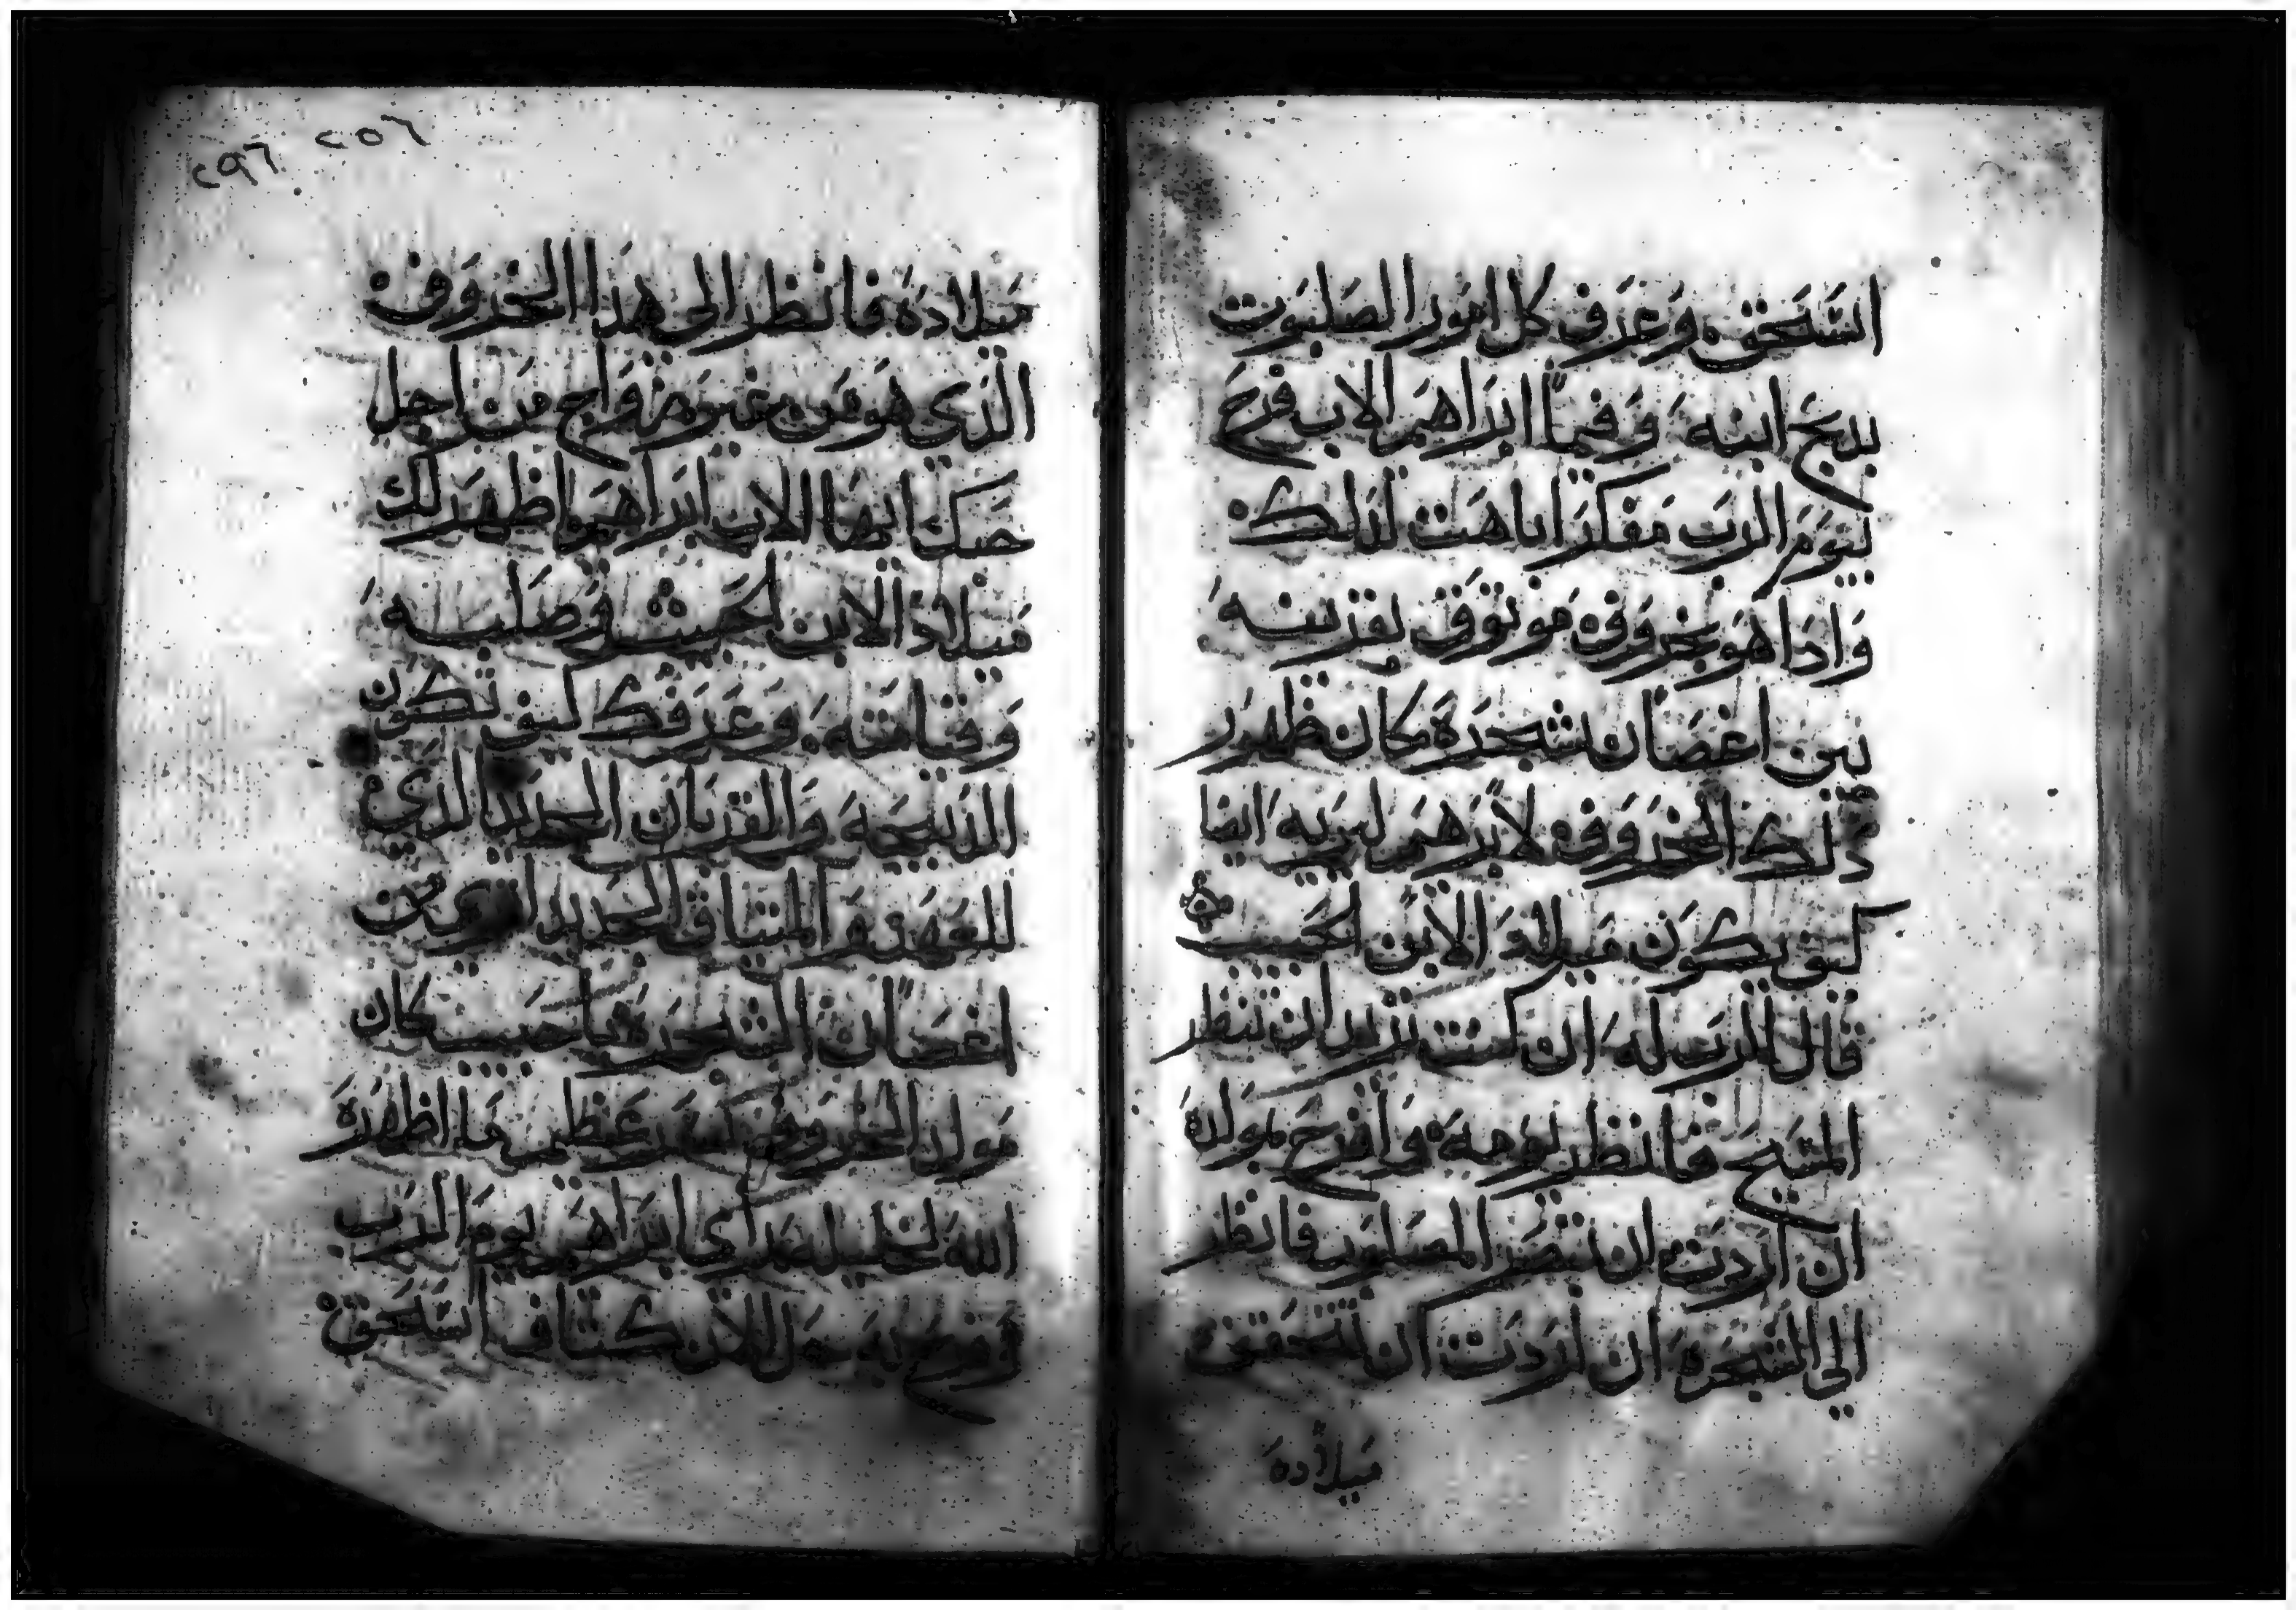 اسحق وعرف كل امور الصلبوت
بدبح ابنه وفيما ابراهيم الاب فرح
بيوم الرب مفكرا باهت لدلك
وادا هو بخروف موتوق بقرنيه
بين اغصان شجرة كان ظهور
دلك الخروف لابرهيم ليريه ايضا
كيف يكون ميلاد الابن الحبيب
قال الرب له ان كنت تريد ان تنظر
المسيح فانظر نوحه وافرح بمولده
ان اردت ان تبصر المصلوب فانظر
الي الشجرة ان اردت ان تتحقق
ميلاده
٢٥٦
٢٩٦
ميلاده فانظر الى هدا الخروف
الدي هو من غير زواج من اجل
حبك ايها الاب ابراهيم اظهر لك
ميلاد الابن الحبيب وصلبه
وقيامته وعرفك كيف تكون
الدبيحة والقربان الجديد الدي
للعهد والميتاق الجديد بين
اغصان الشجرة يا حبيب كان
مولد الخروف عظيم ما اظهره
الله لخليله راي ابراهيم يوم الرب
وفرح به الان كتاف اسحق